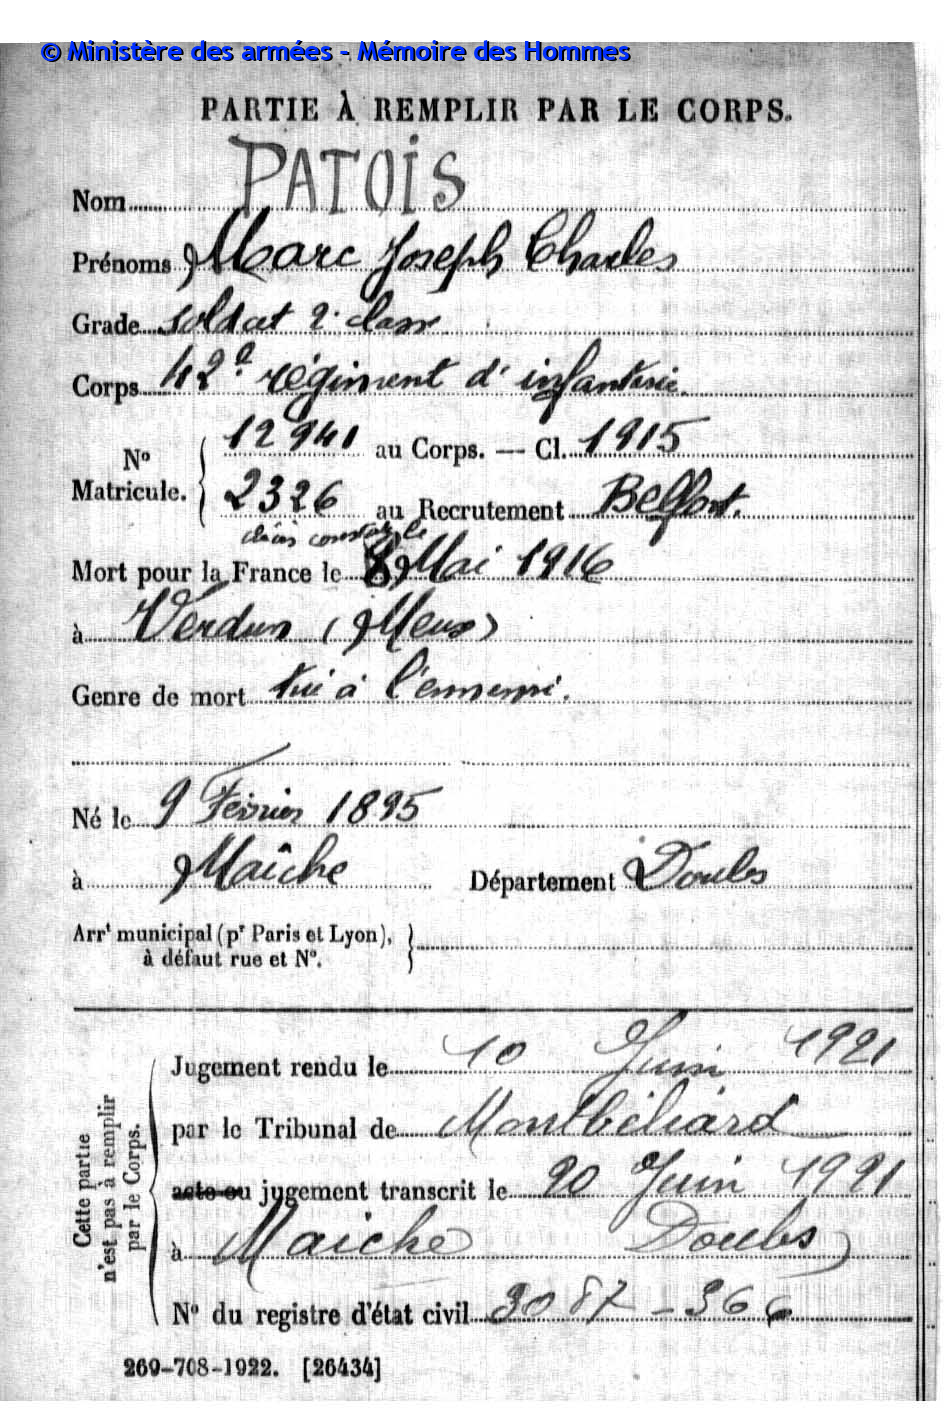 © Ministère des armées - Mémoire des Hommes
PARTIE À REMPLIR PAR LE CORPS.
Nom PATOIS
Prénoms Marc Joseph Charles
Grade soldat 2e classe
Corps 42e régiment d'infanterie
No Matricule. { 12941 au Corps. — Cl. 1915
2326 au Recrutement Belfort.
décès constaté le
Mort pour la France le 8 Mai 1916
à Verdun (Meuse)
Genre de mort tué à l'ennemi.
Né le 9 Février 1895
à Maîche Département Doubs
Arrt municipal (pr Paris et Lyon), }
à défaut rue et No.
Cette partie n'est pas à remplir par le Corps.
Jugement rendu le 10 Juin 1921
par le Tribunal de Montbéliard
acte ou jugement transcrit le 20 Juin 1921
à Maiche Doubs)
No du registre d'état civil 3087-366
269-708-1922. [26434]